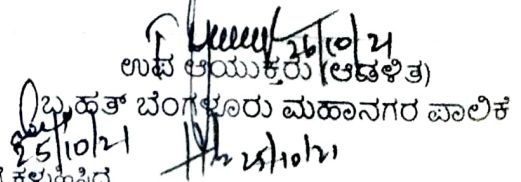 26/10/21
ಉಪ ಆಯುಕ್ತರು (ಆಡಳಿತ)
ಬೃಹತ್ ಬೆಂಗಳೂರು ಮಹಾನಗರ ಪಾಲಿಕೆ
25/10/21 25/10/21